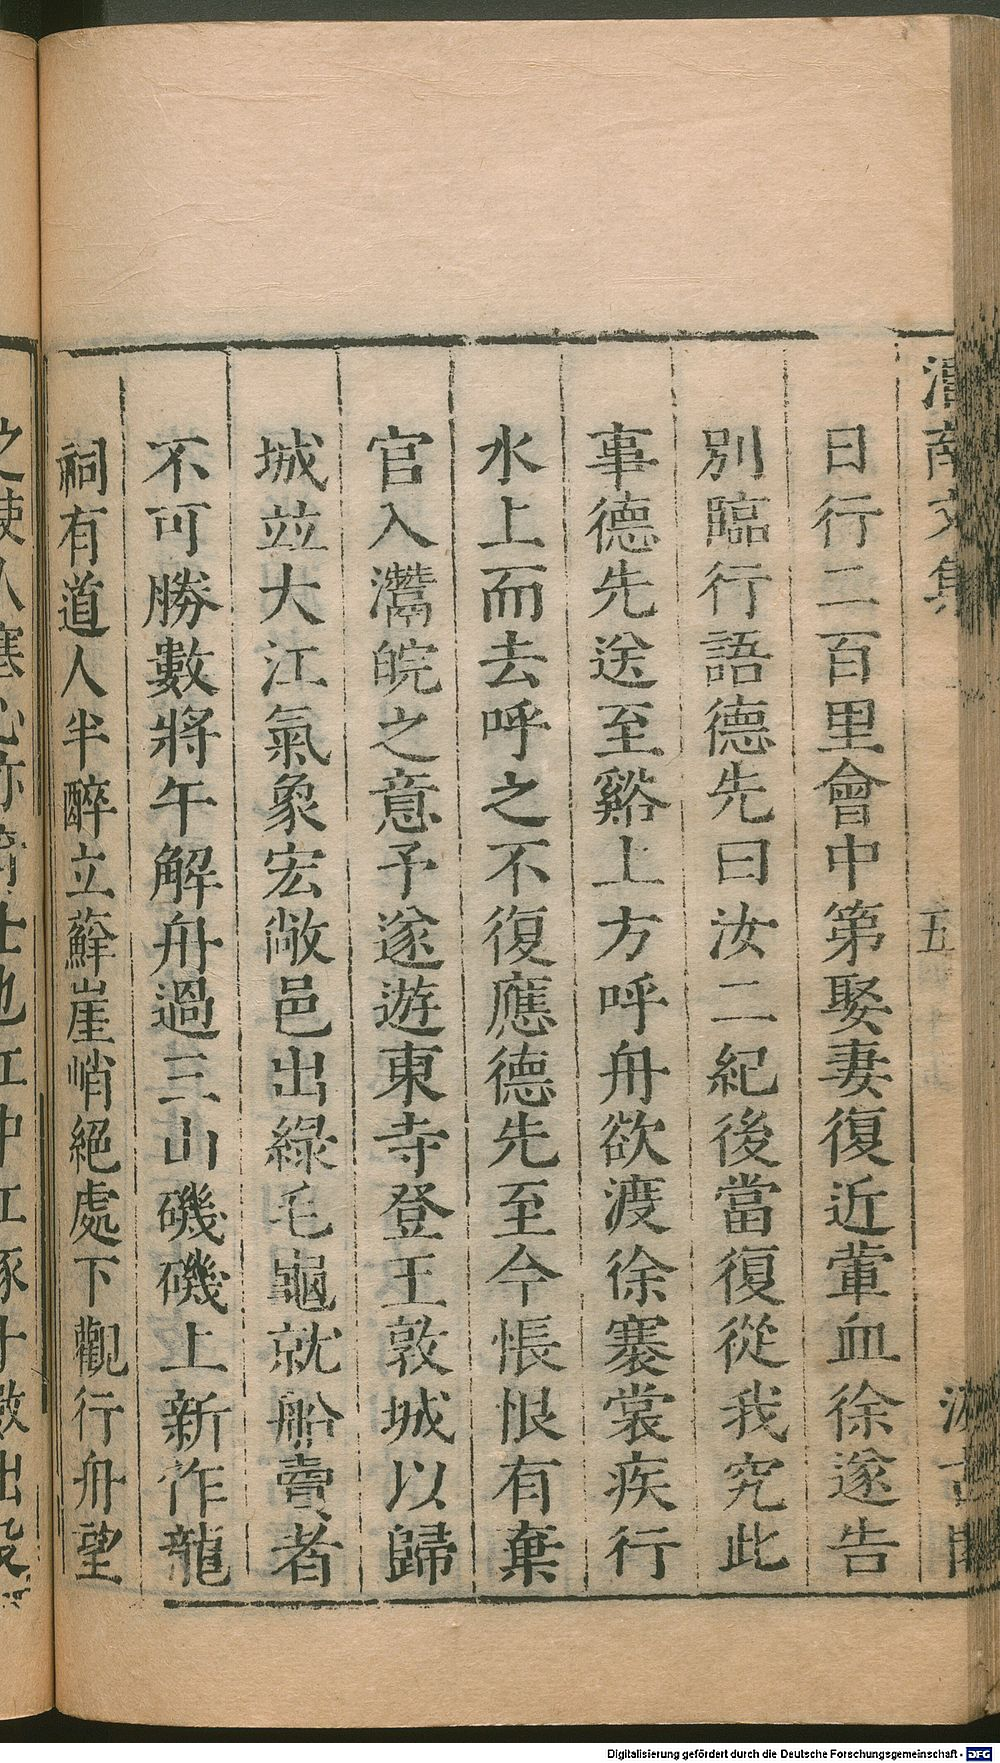 日行二百里會中第娶妻復近葷血徐遂告
別臨行語德先曰汝二紀後當復從我究此
事德先送至谿上方呼舟欲渡徐褰裳疾行
水上而去呼之不復應德先至今悵恨有棄
官入灊皖之意予遂遊東寺登王敦城以歸
城並大江氣象宏敞邑出綠毛龜就船賣者
不可勝數將午解舟過三山磯磯上新作龍
祠有道人半醉立蘚崖峭絕處下觀行舟望
五
Digitalisierung gefördert durch die Deutsche Forschungsgemeinschaft - DFG